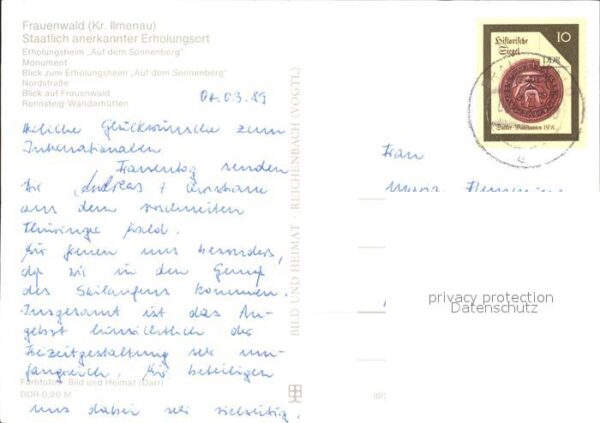 Frauenwald (Kr. Ilmenau)
Staatlich anerkannter Erholungsort
Erholungsheim „Auf dem Sonnenberg“
Monument
Blick zum Erholungsheim „Auf dem Sonnenberg“
Nordstraße
Blick auf Frauenwald
Rennsteig-Wanderhütten
03.89
Herzliche Glückwünsche zum
Internationalen
Frauentag senden
Ihr Andreas +
aus dem verschneiten
Thüringer Wald.
Wir freuen uns besonders,
daß wir in den Genuß
des Skilaufens kommen.
Insgesamt ist das An-
gebot hinsichtlich der
Freizeitgestaltung sehr um-
fangreich. Wir beteiligen
Farbfotos: Bild und Heimat (Darr)
DDR 0,20 M
uns dabei sehr vielseitig.
BILD UND HEIMAT · REICHENBACH (VOGTL)
Historische
Siegel
10
DDR
Frau
privacy protection
Datenschutz